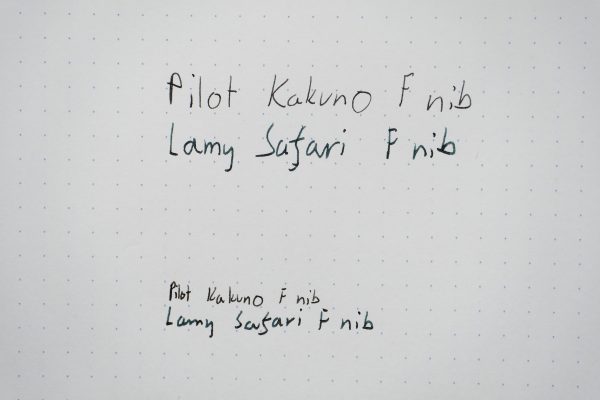 Pilot Kakuno F nib
Lamy Safari F nib
Pilot Kakuno F nib
Lamy Safari F nib